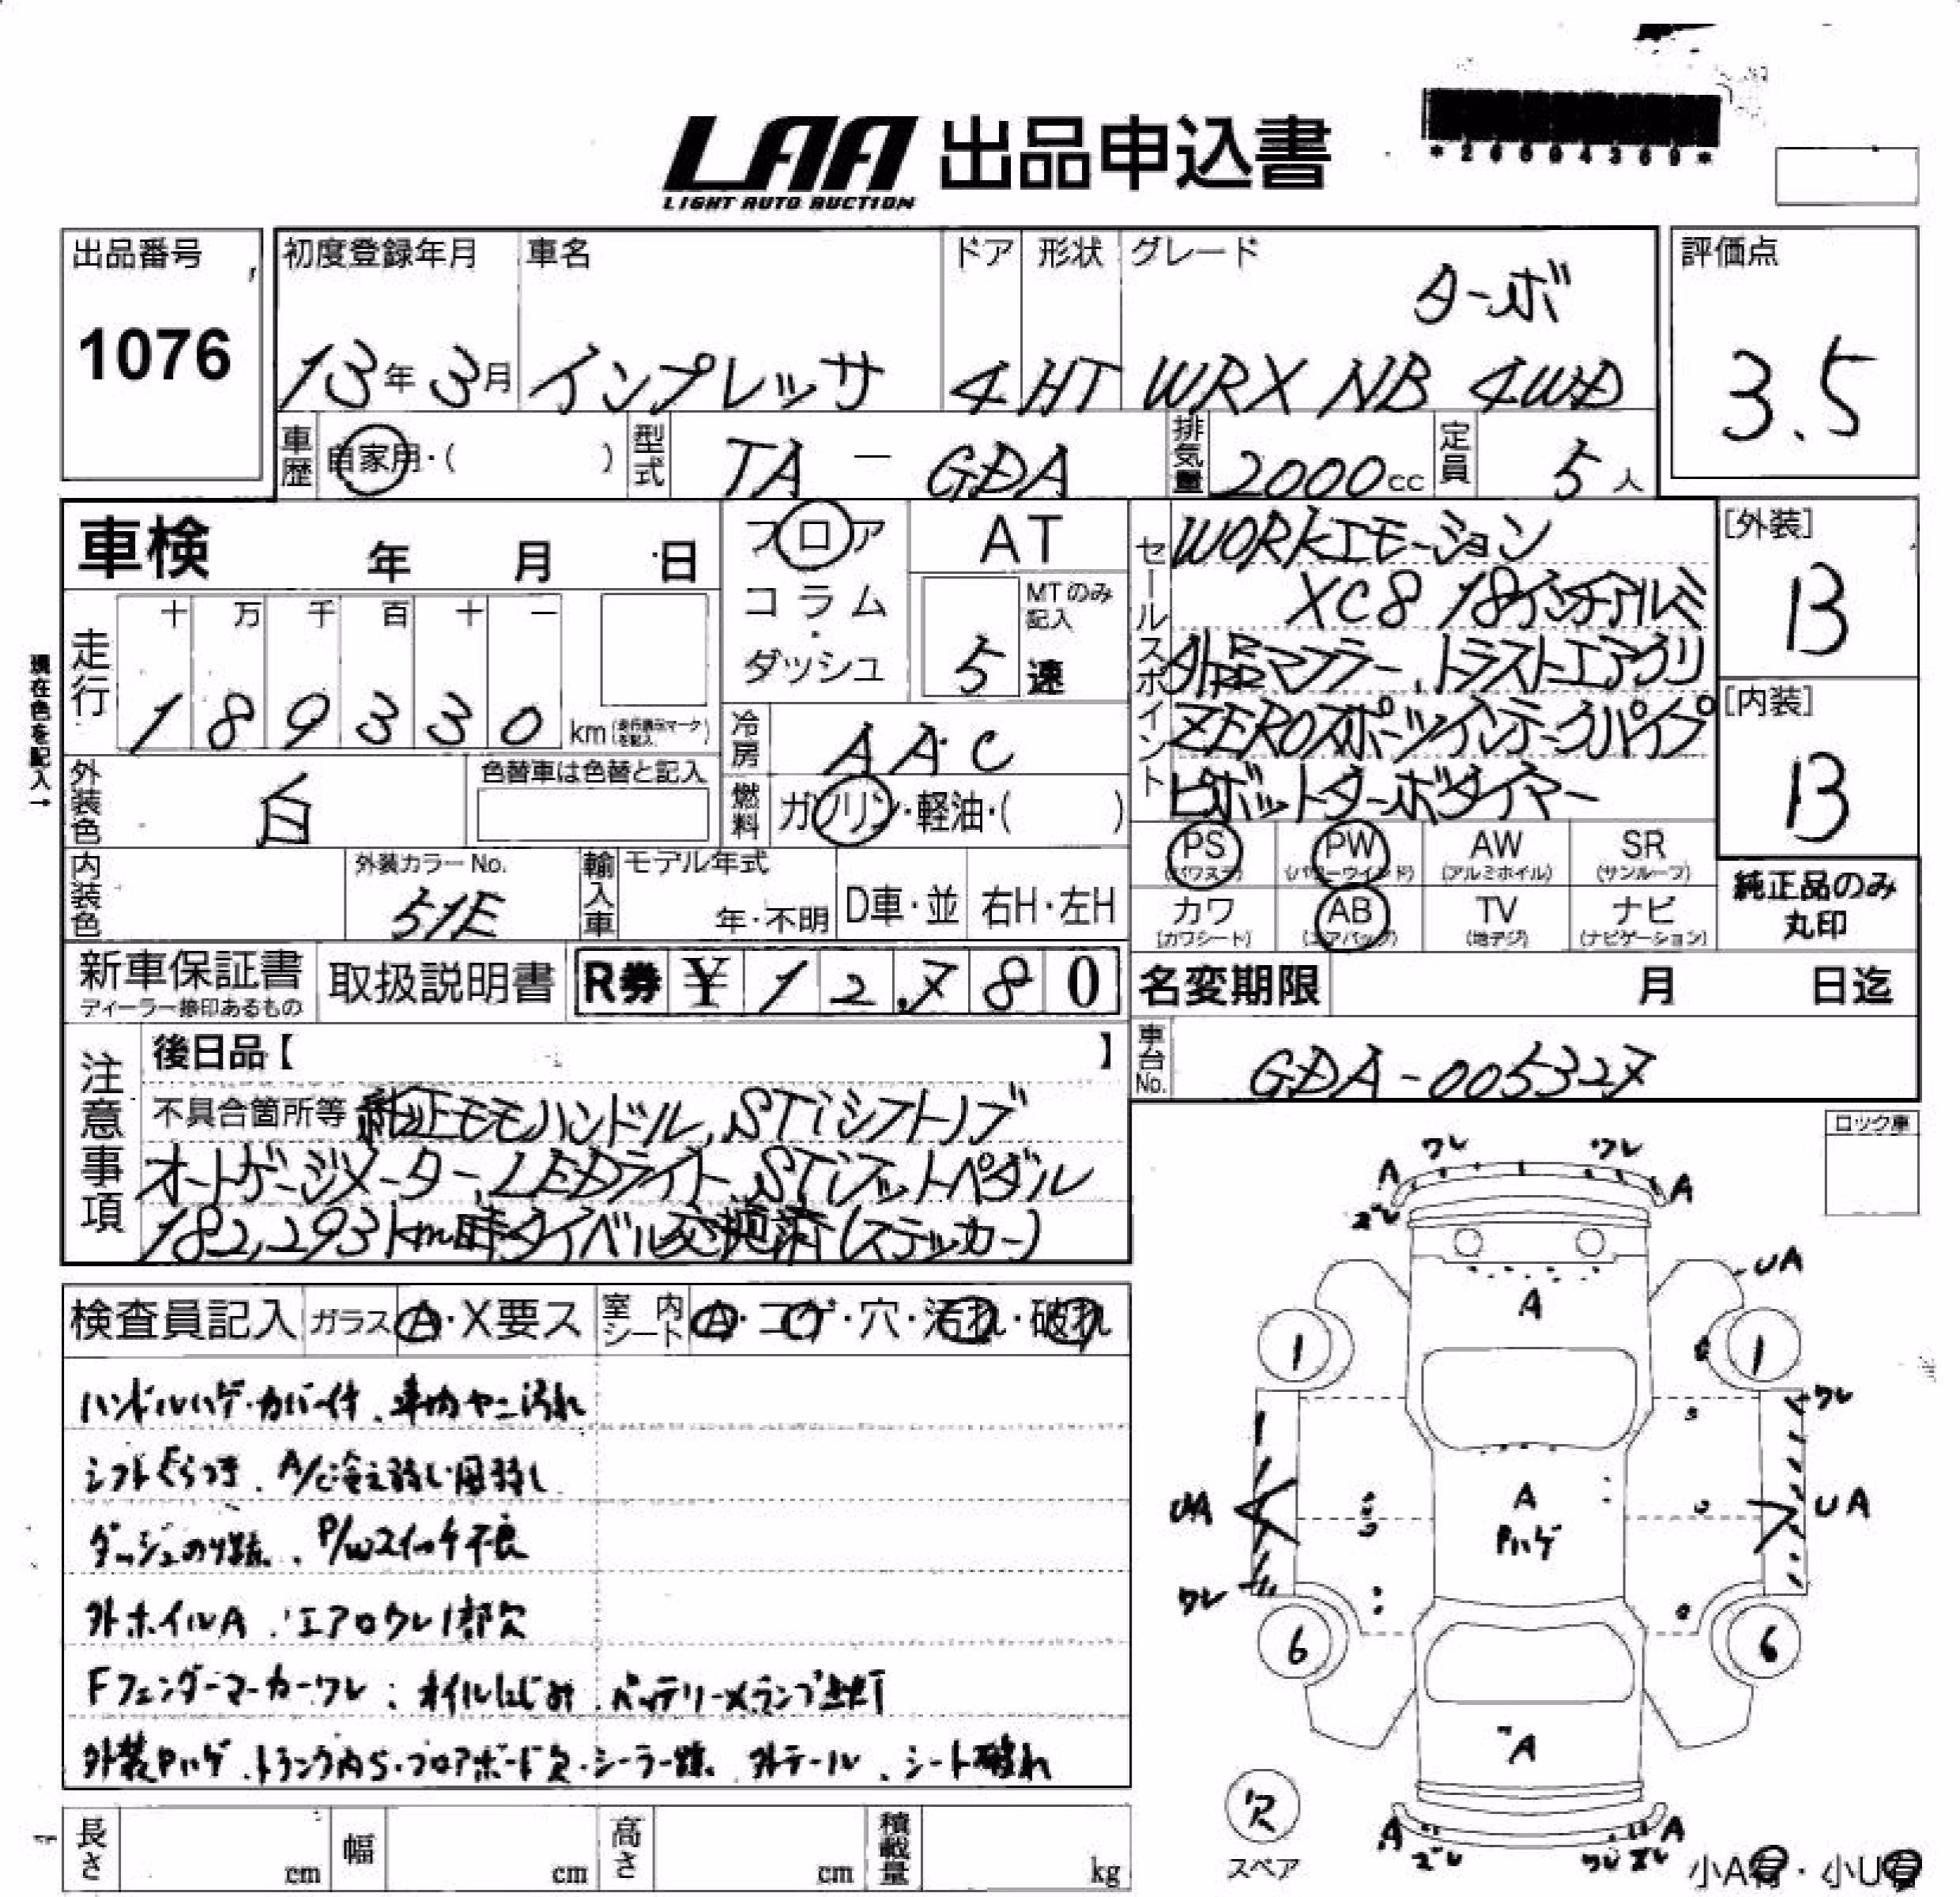 LAA 出品申込書
LIGHT AUTO AUCTION
*26504369*
出品番号
1076
初度登録年月 車名 ドア 形状 グレード
ターボ
13年 3月 インプレッサ 4 HT WRX NB 4WD
評価点
3.5
車歴 自家用・( ) 型式 TA - GDA 排気量 2000cc 定員 5人
車検 年 月 日
フロア
コラム・
ダッシュ
AT
MTのみ記入
5速
現在色を記入→
走行 十 万 千 百 十 一
1 8 9 3 3 0 km
冷房 AAC
燃料 ガソリン・軽油・( )
外装色 白 色替車は色替と記入
内装色 外装カラーNo. 51E
輸入車 モデル年式 年・不明 D車・並 右H・左H
新車保証書 ディーラー捺印あるもの 取扱説明書 R券 ¥ 12,780
セールスポイント
WORKエモーション
XC8 18インチアルミ
外品マフラー、トラストエアクリ
ZEROスポーツインテークパイプ
ピボットターボタイマー
[外装]
B
[内装]
B
PS (パワステ) PW (パワーウインド) AW (アルミホイル) SR (サンルーフ)
カワ (カワシート) AB (エアバッグ) TV (地デジ) ナビ (ナビゲーション)
純正品のみ
丸印
名変期限 月 日迄
車台No. GDA-005327
注意事項
後日品【 】
不具合箇所等 純正モモハンドル、STiシフトノブ
オートゲージメーター、LEDライト、STiフットペダル
182,293km時タイベル交換済(ステッカー)
検査員記入 ガラス A・X要ス 室内シート A・コゲ・穴・汚れ・破れ
ハンドルハゲ・カバー付、車内ヤニ汚れ
シフトぐらつき、A/C冷え弱し・風弱し
ダッシュのり跡、P/Wスイッチ不良
外ホイルA、エアロワレ1部欠
Fフェンダーマーカーワレ、オイルにじみ、バッテリーメランプ点灯
外装Pハゲ、トランク内S・フロアボード欠・シーラー跡、外テール、シート破れ
長さ cm 幅 cm 高さ cm 積載量 kg
ロック車
ワレ ワレ
A A
ズレ
UA
A
1 1
ワレ
A
Pハゲ
UA UA
ワレ
6 6
A
欠
スペア
A A
ズレ ワレ ズレ
小A有・小U有